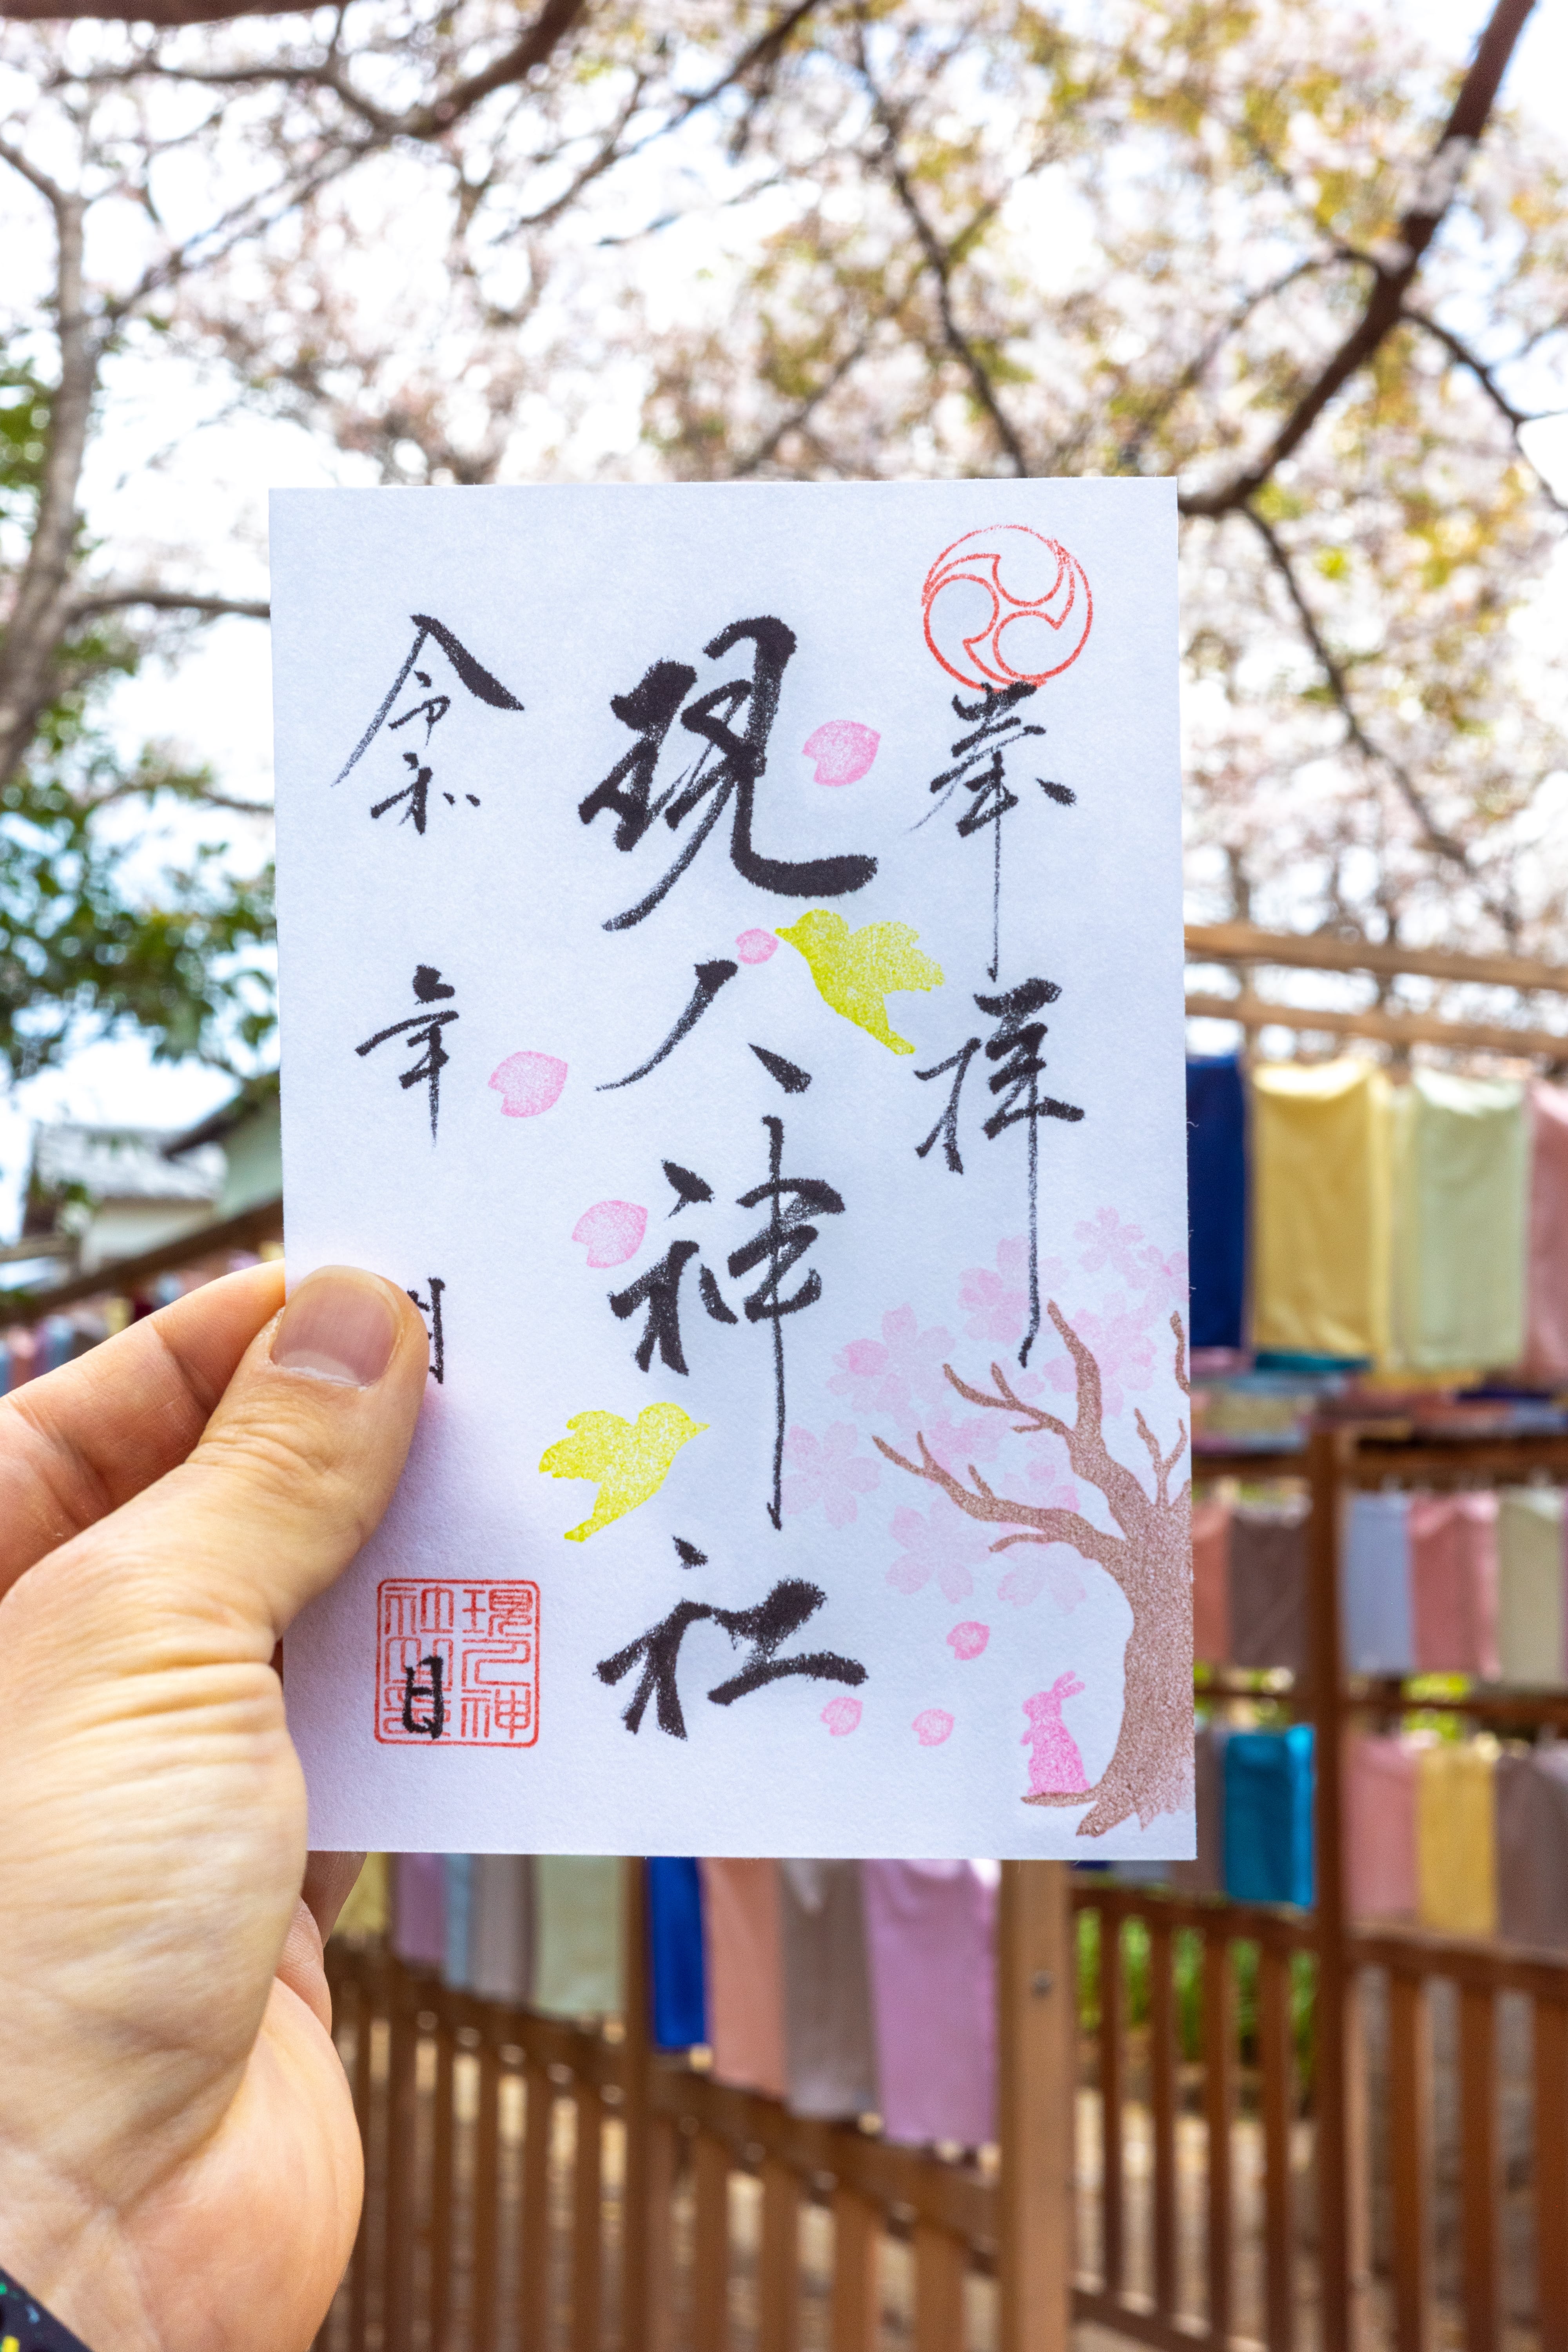 奉拝
現人神社
令和 年 月 日
現人神社